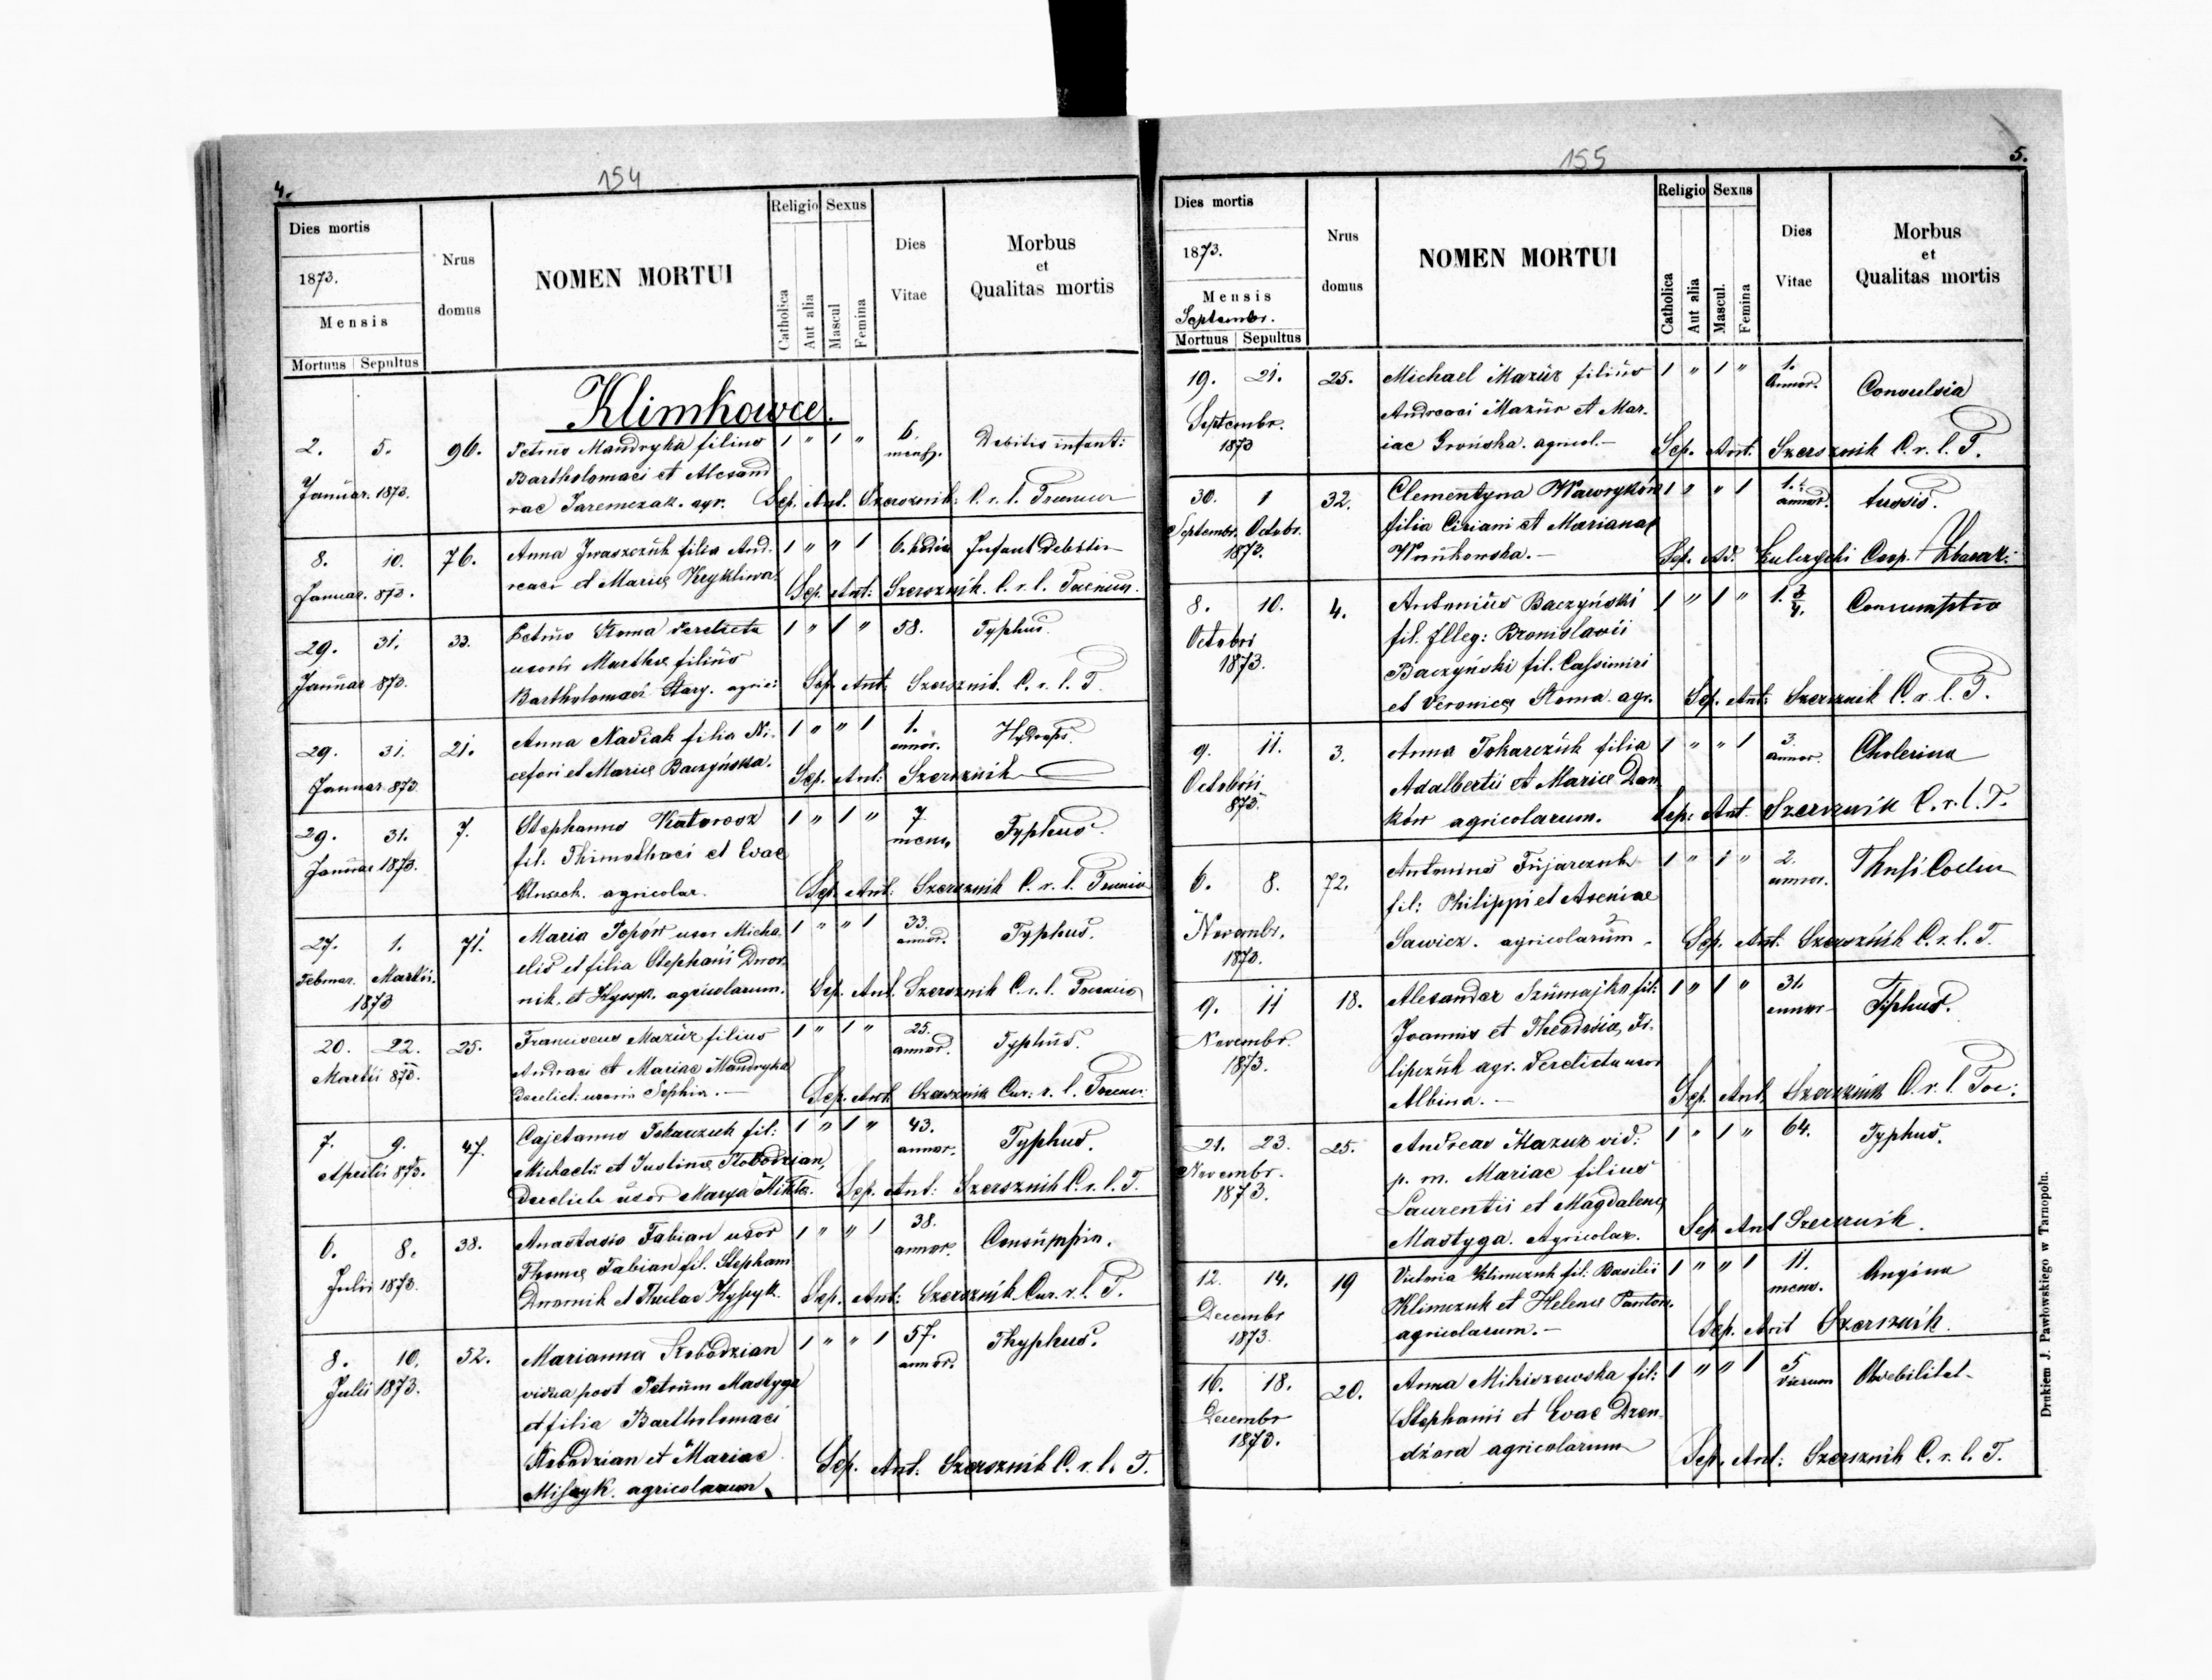 4.
154
Dies mortis
1873.
Mensis
Mortuus Sepultus
Nrus domus
NOMEN MORTUI
Religio
Catholica
Aut alia
Sexus
Mascul
Femina
Dies Vitae
Morbus et Qualitas mortis
Klimkowce.
2. 5. 96. Petrus Mandryka filius 1 " 1 " 6. mens. Debitis infant:
Januar. 1873. Bartholomaei et Alexand
rae Jaremczak. agr. Sep. Ant. Szersznik: C. r. l.
8. 10. 76. Anna Iwaszczuk filia And. 1 " " 1 6. Infant debitis
Januar. 873. reaei et Mariae Sep. Ant: Szersznik. C. r. l.
29. 31. 33. Petrus Stoma derelicta 1 " 1 " 58. Typhus
Januar 873. uxoris Marthae filius
Bartholomaei Stary. agric: Sep. Ant. Szersznik. C. r. l. T.
29. 31. 21. Anna Nadiak filia Ni- 1 " " 1 1. annor. Hydrops.
Januar 873. cefori et Mariae Baczyńska. Sep. Ant: Szersznik
29. 31. 7. Stephanus 1 " 1 " 7 mens. Typhus.
Januar 1873. fil. Thimothaei et Evae
agricolar. Sep. Ant: Szersznik C. r. l.
27. 1. 71. Maria Popów uxor Micha 1 " " 1 33. annor. Typhus.
Februar. Martii. elis et filia Stephani Dwor
1873 nik. et agricolarum. Sep. Ant. Szersznik C. r. l.
20. 22. 25. Franciscus Mazur filius 1 " 1 " 25. annor. Typhus.
Martii 873. Andreaei et Mariae Mandryka
derelict: uxoris Sophia. Sep. Ant Szersznik Cur: r. l.
7. 9. 47. Cajetanus Tokarczuk fil: 1 " 1 " 43. annor. Typhus.
Aprilis 873. Michaelis et Justinae Stobodzian,
derelicta uxor Marya Mikła. Sep. Ant: Szersznik C. r. l. T.
6. 8. 38. Anastasia Fabian uxor 1 " " 1 38. annor.
Julii 1873. Thomae Fabian fil. Stephani
Dwornik et Theclae Sep. Ant: Szersznik Cur. r. l. T.
8. 10. 52. Marianna Stobodzian 1 " " 1 57. annor. Thyphus.
Julii 1873. vidua post Petrum Mastyga
et filia Bartholomaei
Stobodzian et Mariae Sep. Ant: Szersznik C. r. l. T.
agricolarum.
155
5.
Dies mortis
1873.
Mensis
Septembr.
Mortuus Sepultus
Nrus domus
NOMEN MORTUI
Religio
Catholica
Aut alia
Sexus
Mascul.
Femina
Dies Vitae
Morbus et Qualitas mortis
19. 21. 25. Michael Mazur filius 1 " 1 " 1. annor. Convulsia
Septembr. Andreaei Mazur et Mar-
1873 iae Grońska. agricol. Sep. Ant. Szersznik C. r. l. T.
30. 1 32. Clementyna Wawryków 1 " " 1 annor. tussis.
Septembr. Octobr. filia Ciriani et Marianae
1873. Sep. Ad. Kulczycki Coop. Zbaraz:
8. 10. 4. Antonius Baczyński 1 " 1 " 1. 3/4. Consumptio
Octobri fil. Illeg: Bronislavii
1873. Baczyński fil. Cassimiri
et Veronicae Stoma. agr. Sep. Ant: Szersznik C. r. l. T.
9. 11. 3. Anna Tokarczuk filia 1 " " 1 3. annor. Cholerina
Octobrii Adalbertii et Mariae Dan
873. ków agricolarum. Sep: Ant. Szersznik C. r. l. T.
6. 8. 72. Antonius Fujarczuk 1 " 1 " 2. annor.
Novembr. fil: Philippi et Aseniae
1873. Sawicz. agricolarum. Sep. Ant. Szersznik C. r. l. T.
9. 11 18. Alexander Szumajko fil: 1 " 1 " 31 annor Typhus.
Novembr. Joannis et Theodosiae Fi-
1873. lipczuk agr. derelicta uxor
Albina. Sep. Ant. Szersznik C. r. l. Toe:
21. 23. 25. Andreas Mazur vid: 1 " 1 " 64. Typhus.
Novembr. p. m. Mariae filius
1873. Laurentii et Magdalenae
Mastyga. Agricolar. Sep. Ant Szersznik.
12. 14. 19 Victoria Klimczuk fil: Basilii 1 " " 1 11. mens. Angina
Decembr Klimczuk et Helenae Panton.
1873. agricolarum. Sep. Ant Szersznik.
16. 18. 20. Anna Mihiszewska fil: 1 " " 1 5 dierum
Decembr Stephanii et Evae Dzen-
1873. dżora agricolarum Sep. Ant: Szersznik C. r. l. T.
Drukiem J. Pawłowskiego w Tarnopolu.